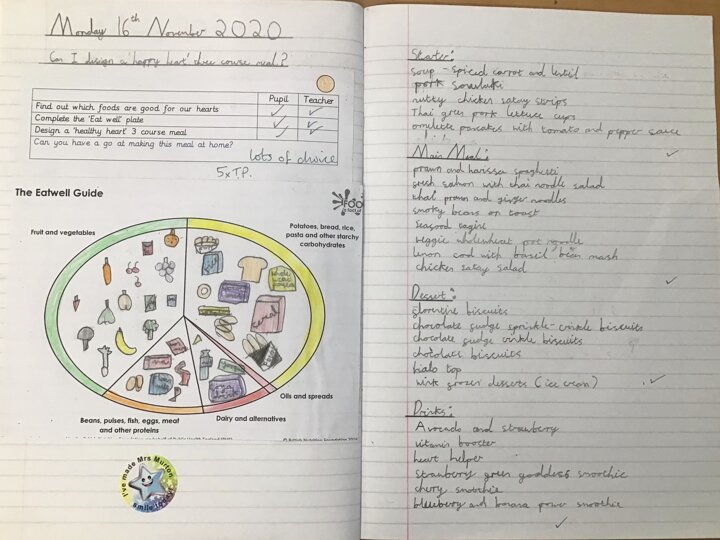 Monday 16th November 2020
Can I design a 'happy heart' three course meal?
Pupil Teacher
Find out which foods are good for our hearts
Complete the 'Eat well' plate
Design a 'healthy heart' 3 course meal
Can you have a go at making this meal at home?
lots of choice
5 x T.P.
The Eatwell Guide
Fruit and vegetables
Potatoes, bread, rice,
pasta and other starchy
carbohydrates
cereal
Oils and spreads
Dairy and alternatives
Beans, pulses, fish, eggs, meat
and other proteins
I've made Mrs Murron
smile today
Starter:
soup - spiced carrot and lentil
pork souvlaki
nutty chicken satay strips
Thai green pork lettuce cups
omelette pancakes with tomato and pepper sauce
Main Meal:
prawn and harissa spaghetti
fresh salmon with thai noodle salad
thai prawn and ginger noodles
smoky beans on toast
Seafood tagine
veggie wholewheat pot noodle
lemon cod with basil bean mash
chicken satay salad
Dessert:
florentine biscuits
chocolate fudge sprinkle-crinkle biscuits
chocolate fudge crinkle biscuits
chocolate biscuits
halo top
wink frozen desserts (ice cream)
Drinks:
Avocado and strawberry
vitamin booster
heart helper
strawberry green goddess smoothie
cherry smoothie
blueberry and banana power smoothie